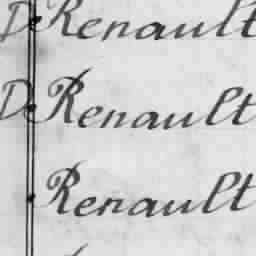 D Renault
D Renault
Renault